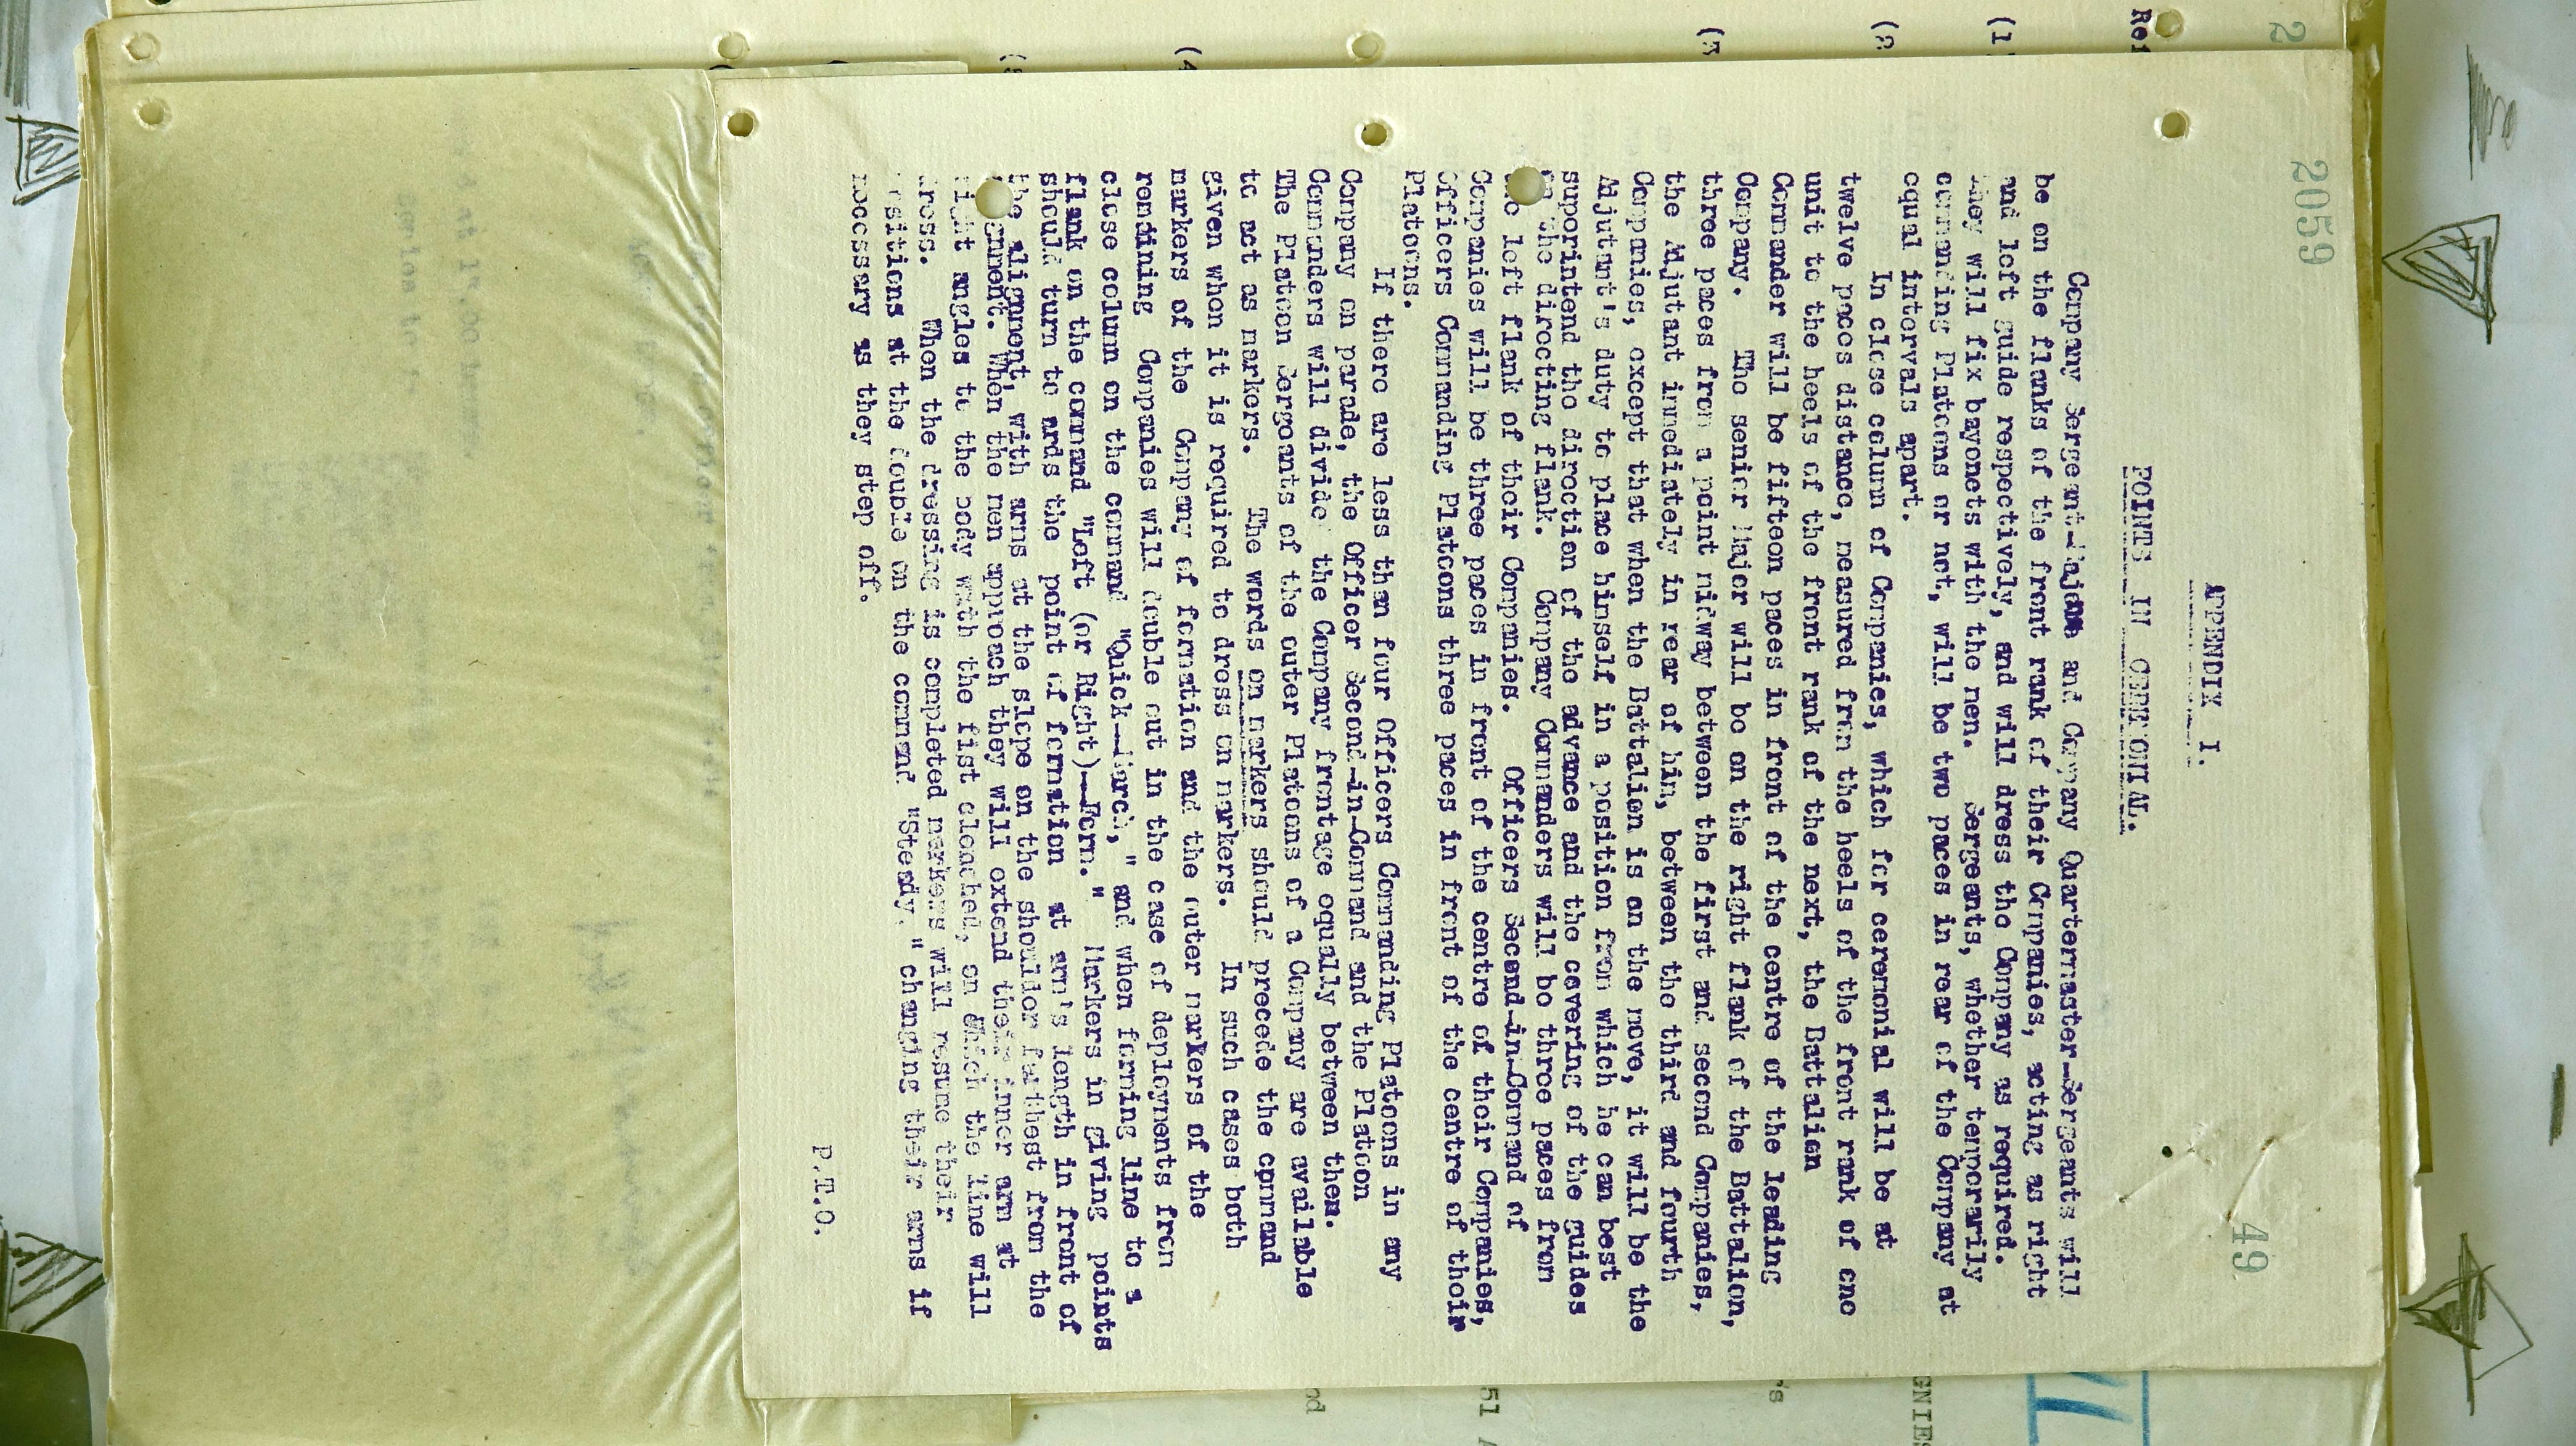 2059
49
APPENDIX I.
POINTS IN CEREMONIAL.
Company Sergeant-Majors and Company Quartermaster-Sergeants will
be on the flanks of the front rank of their Companies, acting as right
and left guide respectively, and will dress the Company as required.
They will fix bayonets with the men. Sergeants, whether temporarily
commanding Platoons or not, will be two paces in rear of the Company at
equal intervals apart.
In close column of Companies, which for ceremonial will be at
twelve paces distance, measured from the heels of the front rank of one
unit to the heels of the front rank of the next, the Battalion
Commander will be fifteen paces in front of the centre of the leading
Company. The senior Major will be on the right flank of the Battalion,
three paces from a point midway between the first and second Companies,
the Adjutant immediately in rear of him, between the third and fourth
Companies, except that when the Battalion is on the move, it will be the
Adjutant's duty to place himself in a position from which he can best
superintend the direction of the advance and the covering of the guides
on the directing flank. Company Commanders will be three paces from
the left flank of their Companies. Officers Second-in-Command of
Companies will be three paces in front of the centre of their Companies,
Officers Commanding Platoons three paces in front of the centre of their
Platoons.
If there are less than four Officers Commanding Platoons in any
Company on parade, the Officer Second-in-Command and the Platoon
Commanders will divide the Company frontage equally between them.
The Platoon Sergeants of the outer Platoons of a Company are available
to act as markers. The words on markers should precede the command
given when it is required to dress on markers. In such cases both
markers of the Company of formation and the outer markers of the
remaining Companies will double out in the case of deployments from
close column on the command "Quick-March," and when forming line to a
flank on the command "Left (or Right)--Form." Markers in giving points
should turn to ards the point of formation at arm's length in front of
the alignment, with arms at the slope on the shoulder farthest from the
alignment. When the men approach they will extend their inner arm at
right angles to the body with the fist clenched, on which the line will
dress. When the dressing is completed markers will resume their
positions at the double on the command "Steady," changing their arms if
necessary as they step off.
P.T.O.